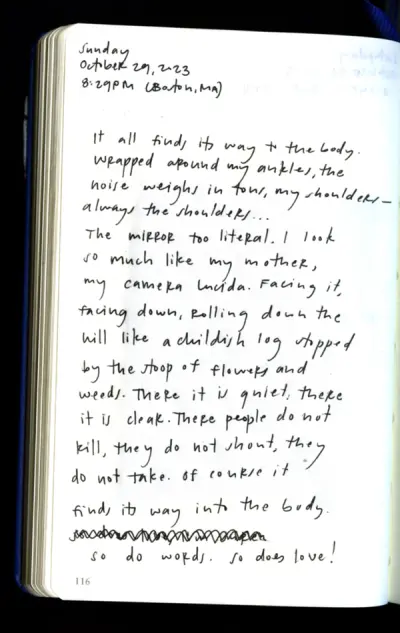 Sunday
October 29, 2023
8:29PM (Boston, MA)
It all finds its way to the body.
Wrapped around my ankles, the
noise weighs in tons, my shoulders—
always the shoulders...
The mirror too literal. I look
so much like my mother,
my camera lucida. Facing it,
facing down, rolling down the
hill like a childish log stopped
by the stoop of flowers and
weeds. There it is quiet, there
it is clear. There people do not
kill, they do not shout, they
do not take. Of course it
finds its way into the body.
so do words. So does love!
116